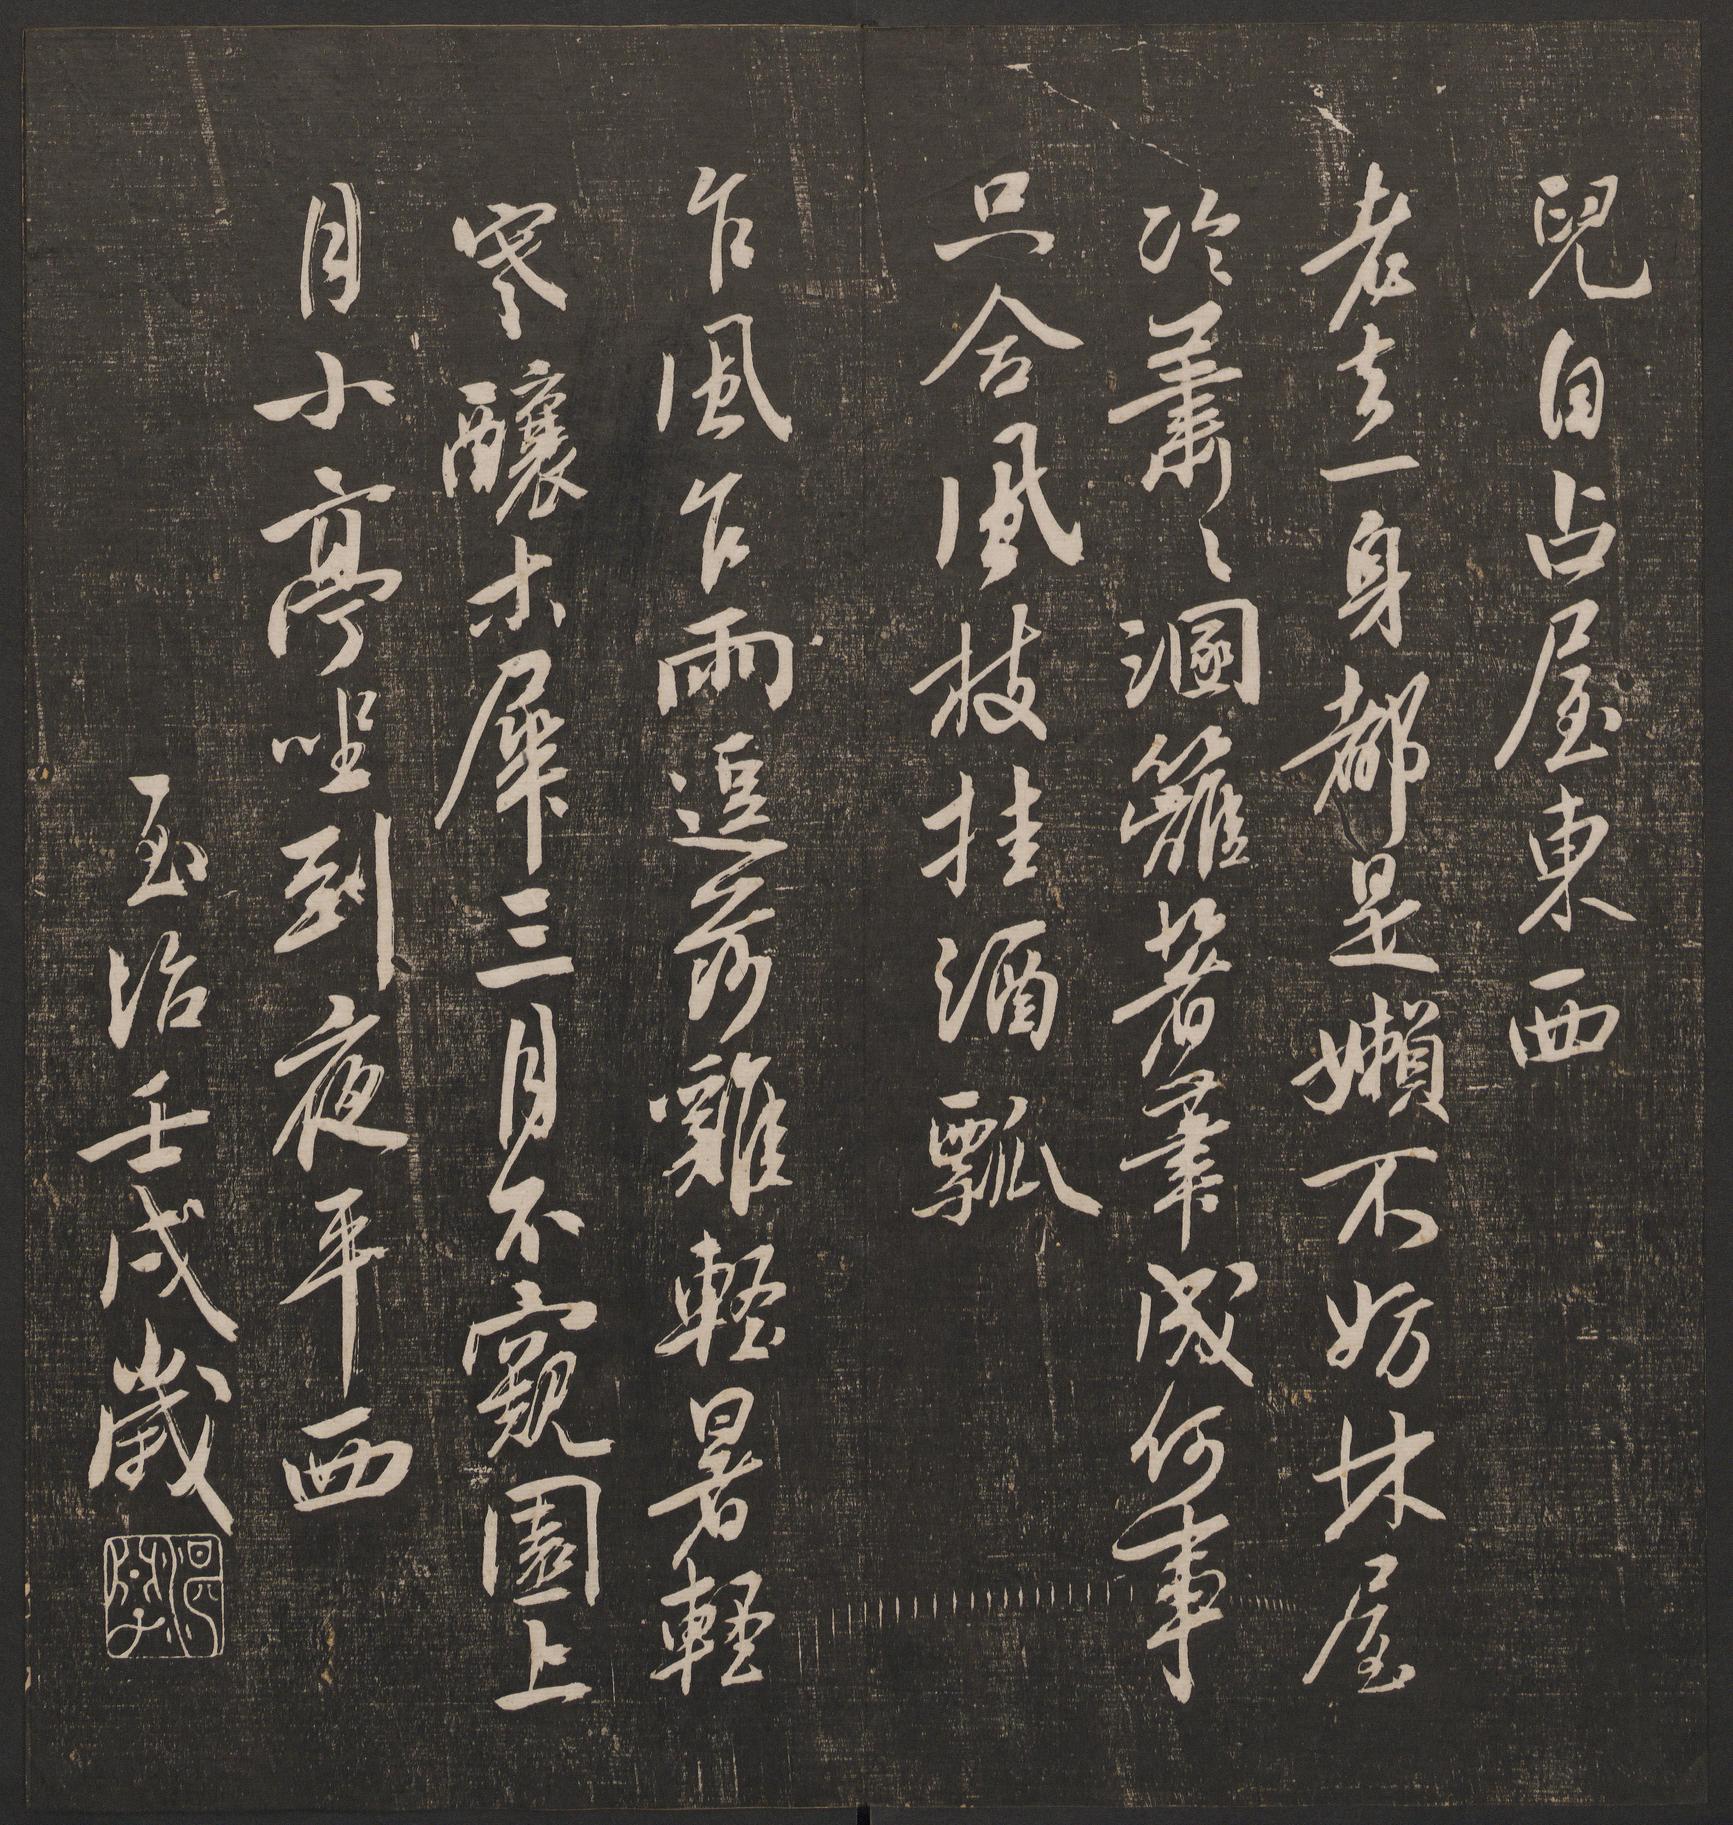 兒自占屋東西
老去一身都是嬾不妨林屋
冷蕭〻溷籬著書成何事
只合風枝挂酒瓢
乍風乍雨逗莎雞輕暑輕
寒釀木犀三月不窺園上
月小亭坐到夜平西
至治壬戌歲